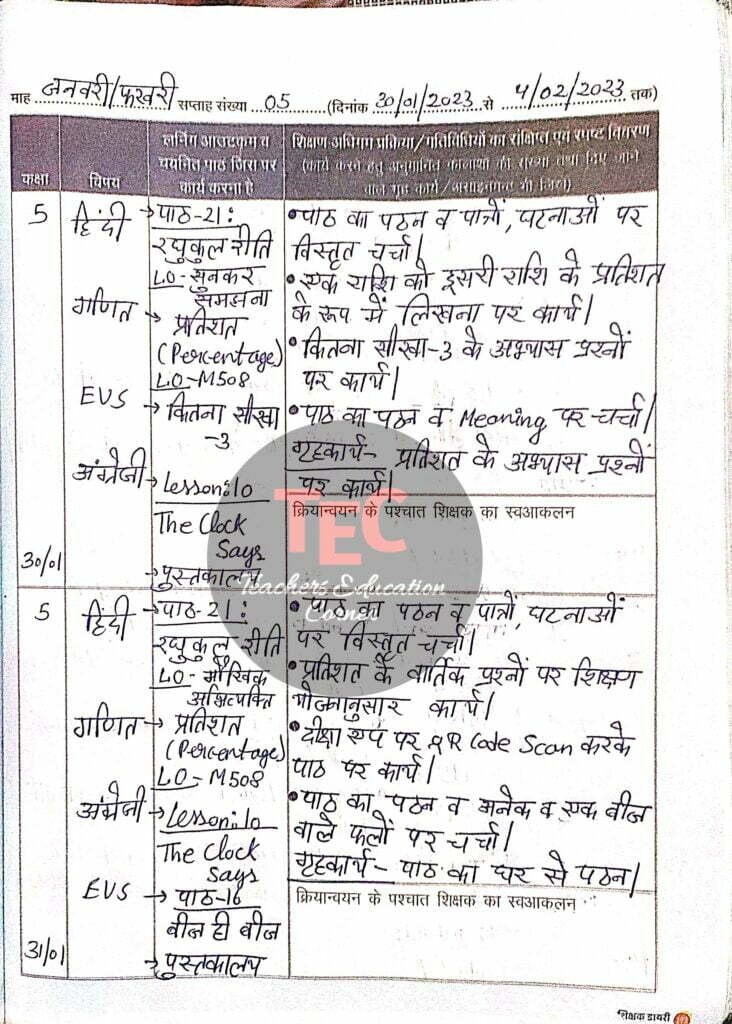 माह जनवरी/फरवरी सप्ताह संख्या 05 (दिनांक 30/01/2023 से 4/02/2023 तक)
कक्षा
विषय
लर्निंग आउटकम व
चयनित पाठ जिस पर
कार्य करना है
शिक्षण अधिगम प्रक्रिया/गतिविधियों का संक्षिप्त एवं स्पष्ट विवरण
(कार्य करने हेतु अनुमानित कालांश की संख्या तथा दिए जाने
वाले गृह कार्य/असाइनमेन्ट भी लिखें)
5
हिंदी
→पाठ-21:
रघुकुल रीति
LO-सुनकर
समझना
गणित→ प्रतिशत
(Percentage)
LO-M508
EVS
→कितना सीखा
-3
अंग्रेजी
→Lesson:10
The Clock
Says
→पुस्तकालय
30/01
•पाठ का पठन व पात्रों, घटनाओं पर
विस्तृत चर्चा।
•एक राशि को दूसरी राशि के प्रतिशत
के रूप में लिखना पर कार्य।
•कितना सीखा-3 के अभ्यास प्रश्नों
पर कार्य।
•पाठ का पठन व Meaning पर चर्चा।
गृहकार्य- प्रतिशत के अभ्यास प्रश्नों
पर कार्य।
क्रियान्वयन के पश्चात शिक्षक का स्वआकलन
TEC
Teachers Education
Corner
5
हिंदी
→पाठ-21:
रघुकुल रीति
LO-मौखिक
अभिव्यक्ति
गणित→ प्रतिशत
(Percentage)
LO-M508
अंग्रेजी
→Lesson:10
The Clock
Says
EVS
→ पाठ-16
बीज ही बीज
→पुस्तकालय
31/01
•पाठ का पठन व पात्रों, घटनाओं
पर विस्तृत चर्चा।
•प्रतिशत के वार्तिक प्रश्नों पर शिक्षण
योजनानुसार कार्य।
•दीक्षा एप पर QR Code Scan करके
पाठ पर कार्य।
•पाठ का पठन व अनेक व एक बीज
वाले फलों पर चर्चा।
गृहकार्य- पाठ का घर से पठन।
क्रियान्वयन के पश्चात शिक्षक का स्वआकलन
शिक्षक डायरी